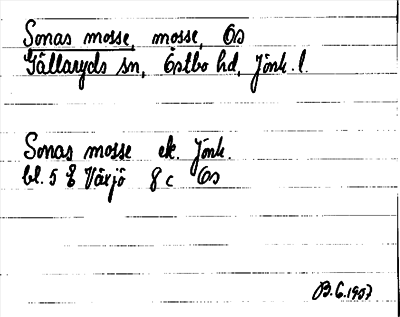 Sonas mosse, mosse, Ös
Gällaryds sn, Östbo hd, Jönk. l.
Sonas mosse ek. Jönk.
bl. 5 E Växjö 8 c Ös
B.G. 1987